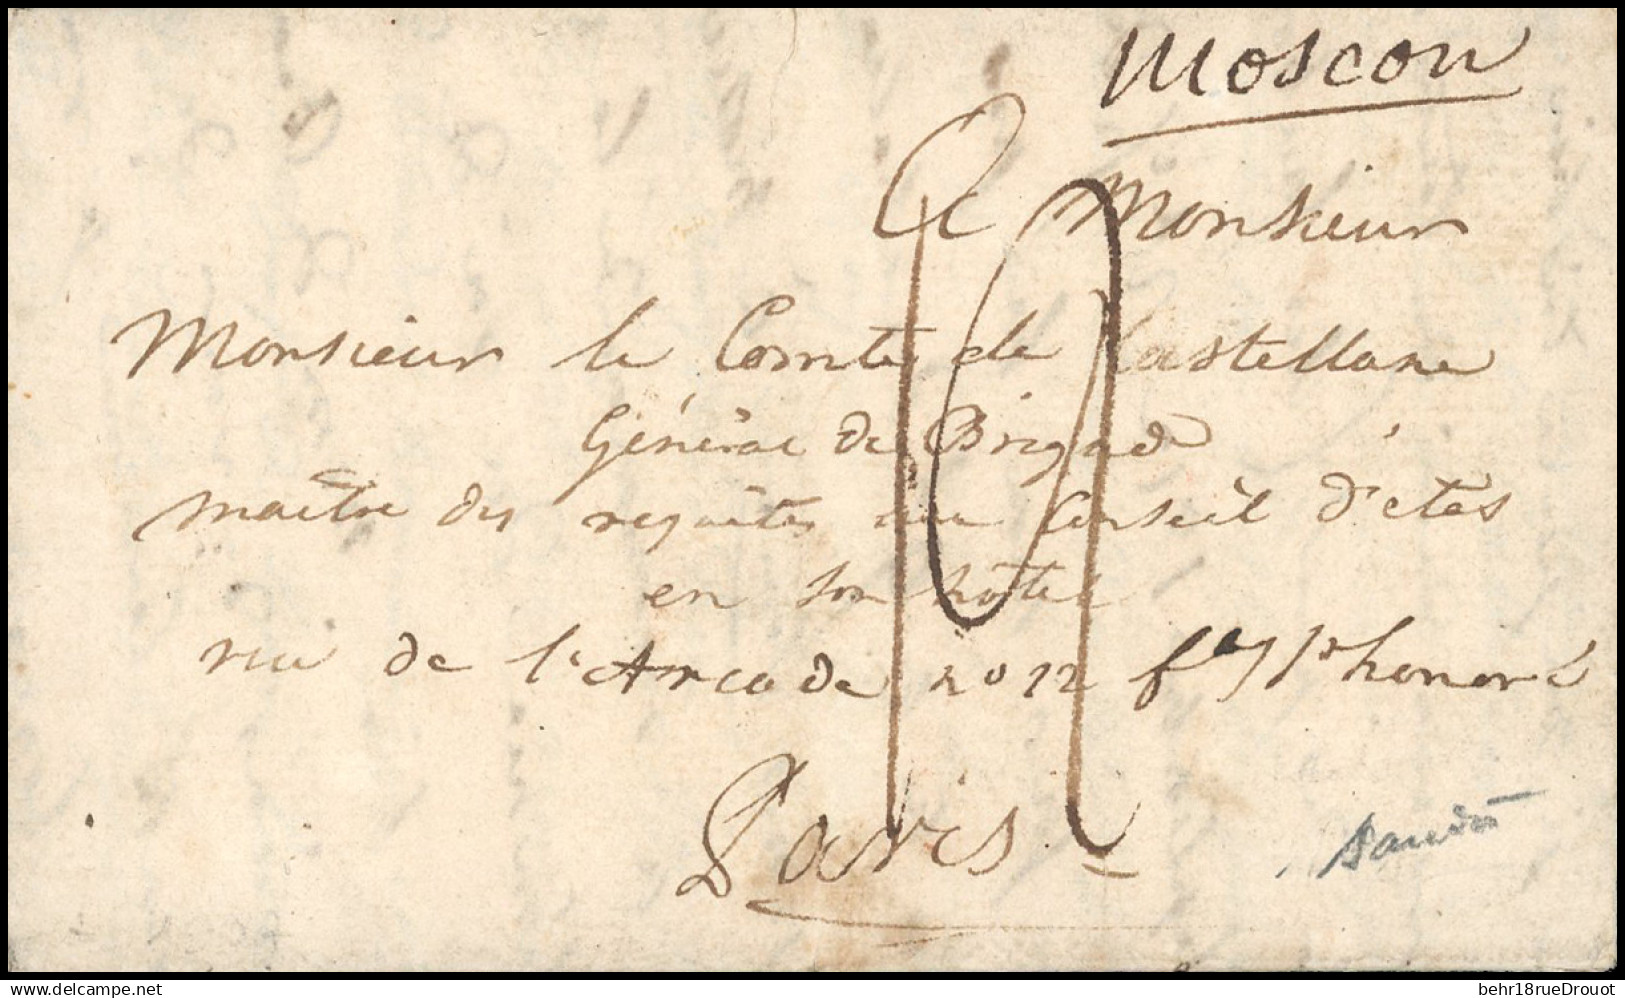 Moscou
A Monsieur
Monsieur le Comte de Castellane
Général de Brigade
maître des requêtes au Conseil d'états
en son hôtel
rue de l'Arcade no 12 fbg St honoré
Paris
www.delcampe.net
behr18rueDrouot